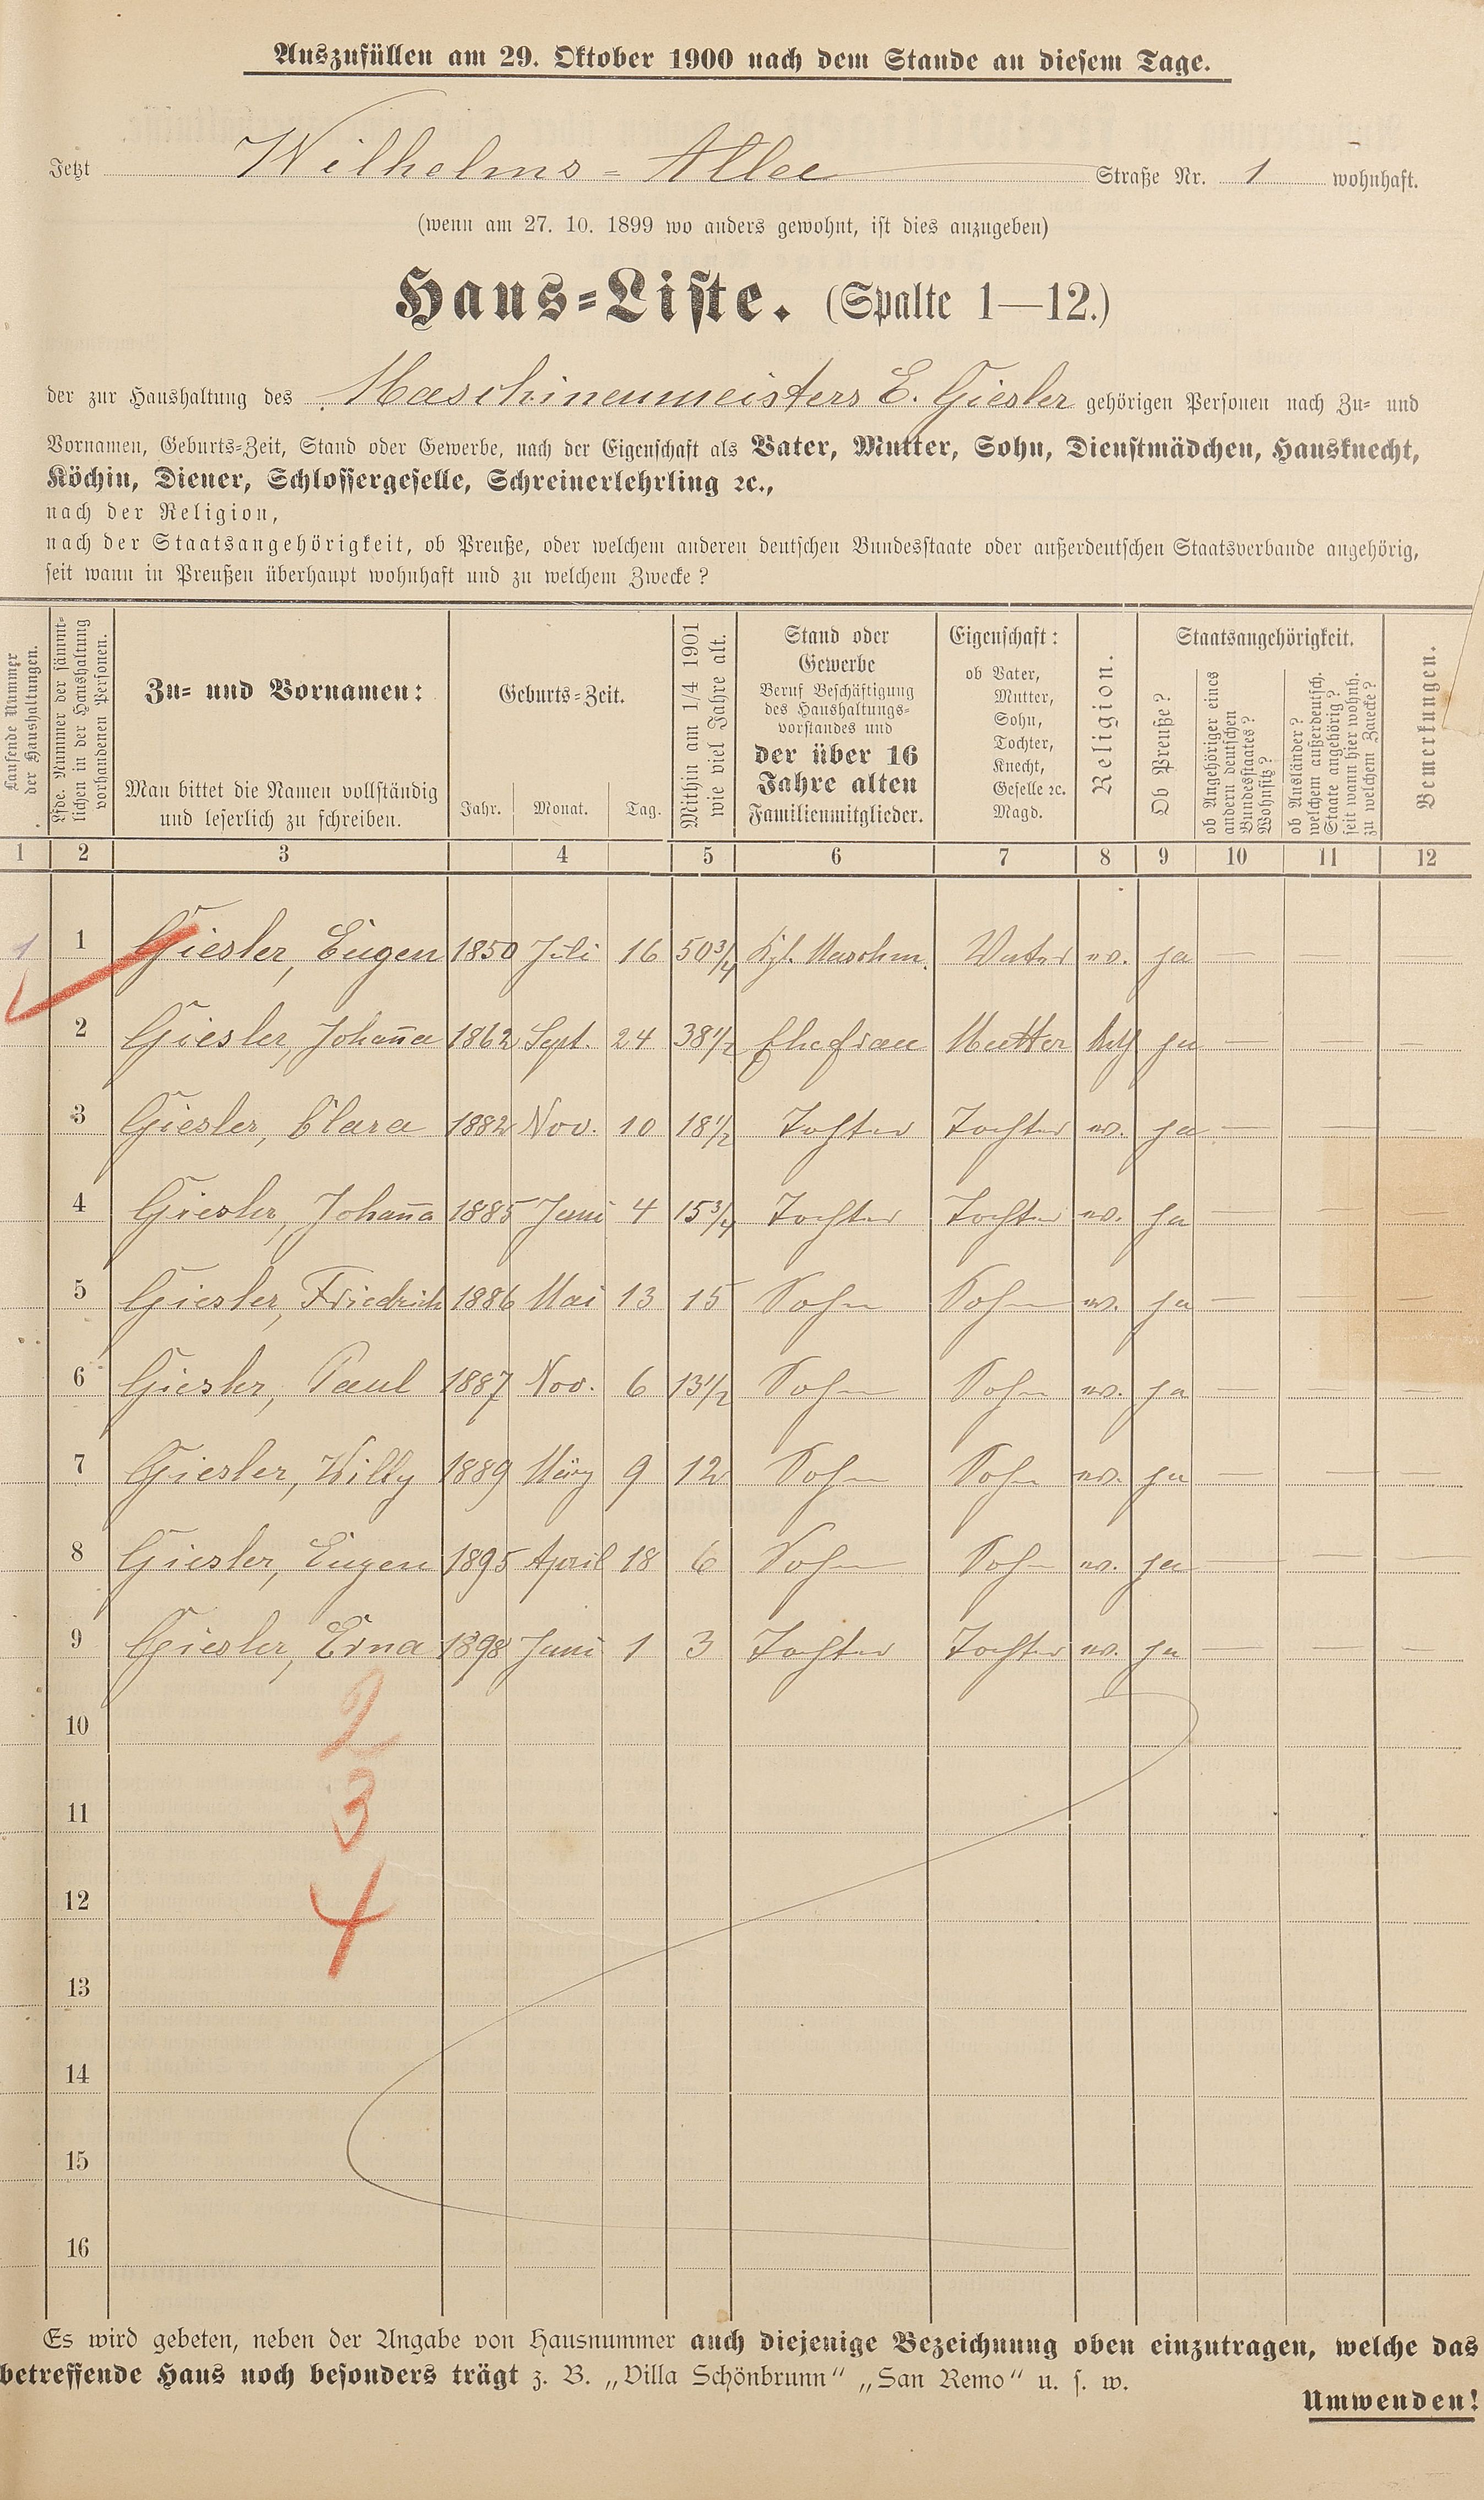 Auszufüllen am 29. Oktober 1900 nach dem Stande an diesem Tage.
Jetzt Wilhelms-Allee Straße Nr. 1 wohnhaft.
(wenn am 27. 10. 1899 wo anders gewohnt, ist dies anzugeben)
Haus-Liste. (Spalte 1—12.)
der zur Haushaltung des Maschinenmeisters E. Giesler gehörigen Personen nach Zu- und
Vornamen, Geburts-Zeit, Stand oder Gewerbe, nach der Eigenschaft als Vater, Mutter, Sohn, Dienstmädchen, Hausknecht,
Köchin, Diener, Schlossergeselle, Schreinerlehrling ꝛc.,
nach der Religion,
nach der Staatsangehörigkeit, ob Preuße, oder welchem anderen deutschen Bundesstaate oder außerdeutschen Staatsverbande angehörig,
seit wann in Preußen überhaupt wohnhaft und zu welchem Zwecke?
Laufende Nummer
der Haushaltungen.
Lfde. Nummer der sämmt-
lichen in der Haushaltung
vorhandenen Personen.
Zu- und Vornamen:
Man bittet die Namen vollständig
und leserlich zu schreiben.
Geburts-Zeit.
Jahr. Monat. Tag.
Mithin am 1/4 1901
wie viel Jahre alt.
Stand oder
Gewerbe
Beruf Beschäftigung
des Haushaltungs-
vorstandes und
der über 16
Jahre alten
Familienmitglieder.
Eigenschaft:
ob Vater,
Mutter,
Sohn,
Tochter,
Knecht,
Geselle ꝛc.
Magd.
Religion.
Staatsangehörigkeit.
Ob Preuße?
ob Angehöriger eines
andern deutschen
Bundesstaates?
Wohnsitz?
ob Ausländer?
welchem außerdeutsch.
Staate angehörig?
seit wann hier wohnh.
zu welchem Zwecke?
Bemerkungen.
1 2 3 4 5 6 7 8 9 10 11 12
1 1 Giesler, Eugen 1850 Juli 16 50 3/4 Kgl. Maschm. Vater ev. ja — — —
2 Giesler, Johan̄a 1862 Sept. 24 38 1/2 Ehefrau Mutter kath ja — — —
3 Giesler, Clara 1882 Nov. 10 18 1/2 Tochter Tochter ev. ja — — —
4 Giesler, Johan̄a 1885 Juni 4 15 3/4 Tochter Tochter ev. ja — — —
5 Giesler, Friedrich 1886 Mai 13 15 Sohn Sohn ev. ja — — —
6 Giesler, Paul 1887 Nov. 6 13 1/2 Sohn Sohn ev. ja — — —
7 Giesler, Willy 1889 März 9 12 Sohn Sohn ev. ja — — —
8 Giesler, Eugen 1895 April 18 6 Sohn Sohn ev. ja — — —
9 Giesler, Erna 1898 Juni 1 3 Tochter Tochter ev. ja — — —
10 2
11 3
12 4
13
14
15
16
Es wird gebeten, neben der Angabe von Hausnummer auch diejenige Bezeichnung oben einzutragen, welche das
betreffende Haus noch besonders trägt z. B. „Villa Schönbrunn“ „San Remo“ u. s. w.
Umwenden!